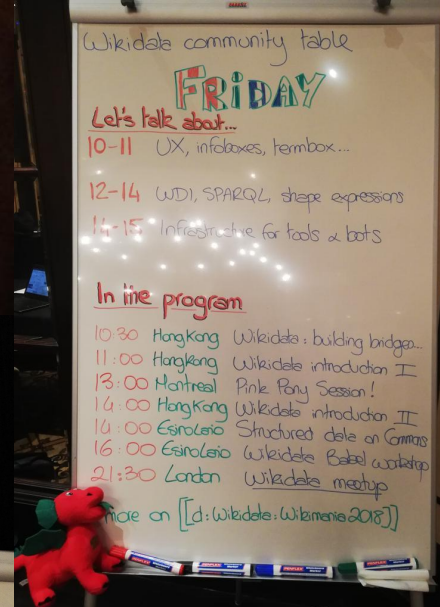 Wikidata community table
FRiDAY
Let's talk about...
10-11 UX, infoboxes, termbox...
12-14 WDI, SPARQL, shape expressions
14-15 Infrastructure for tools & bots
In the program
10:30 HongKong Wikidata: building bridges...
11:00 HongKong Wikidata introduction I
13:00 Montreal Pink Pony Session!
14:00 HongKong Wikidata introduction II
14:00 EsinoLario Structured data on Commons
16:00 EsinoLario Wikidata Babel workshop
21:30 London Wikidata meetup
more on [[d:Wikidata:Wikimania2018]]